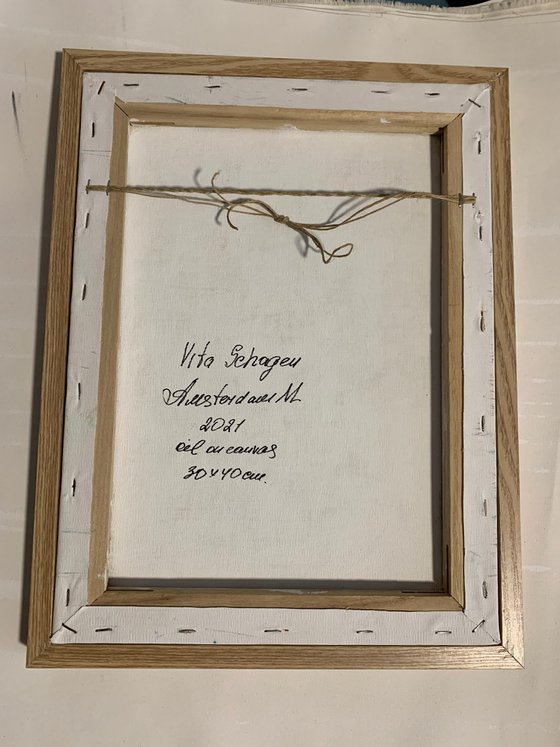 Vita Schagen
Amsterdam
2021
oil on canvas
30x40cm.